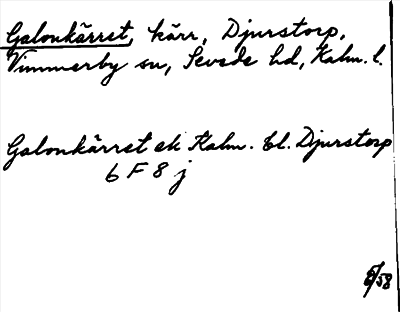 Galonkärret, kärr, Djurstorp,
Vimmerby sn, Sevede hd, Kalm. l.
Galonkärret ek Kalm. bl. Djurstorp
6 F 8 j
/58